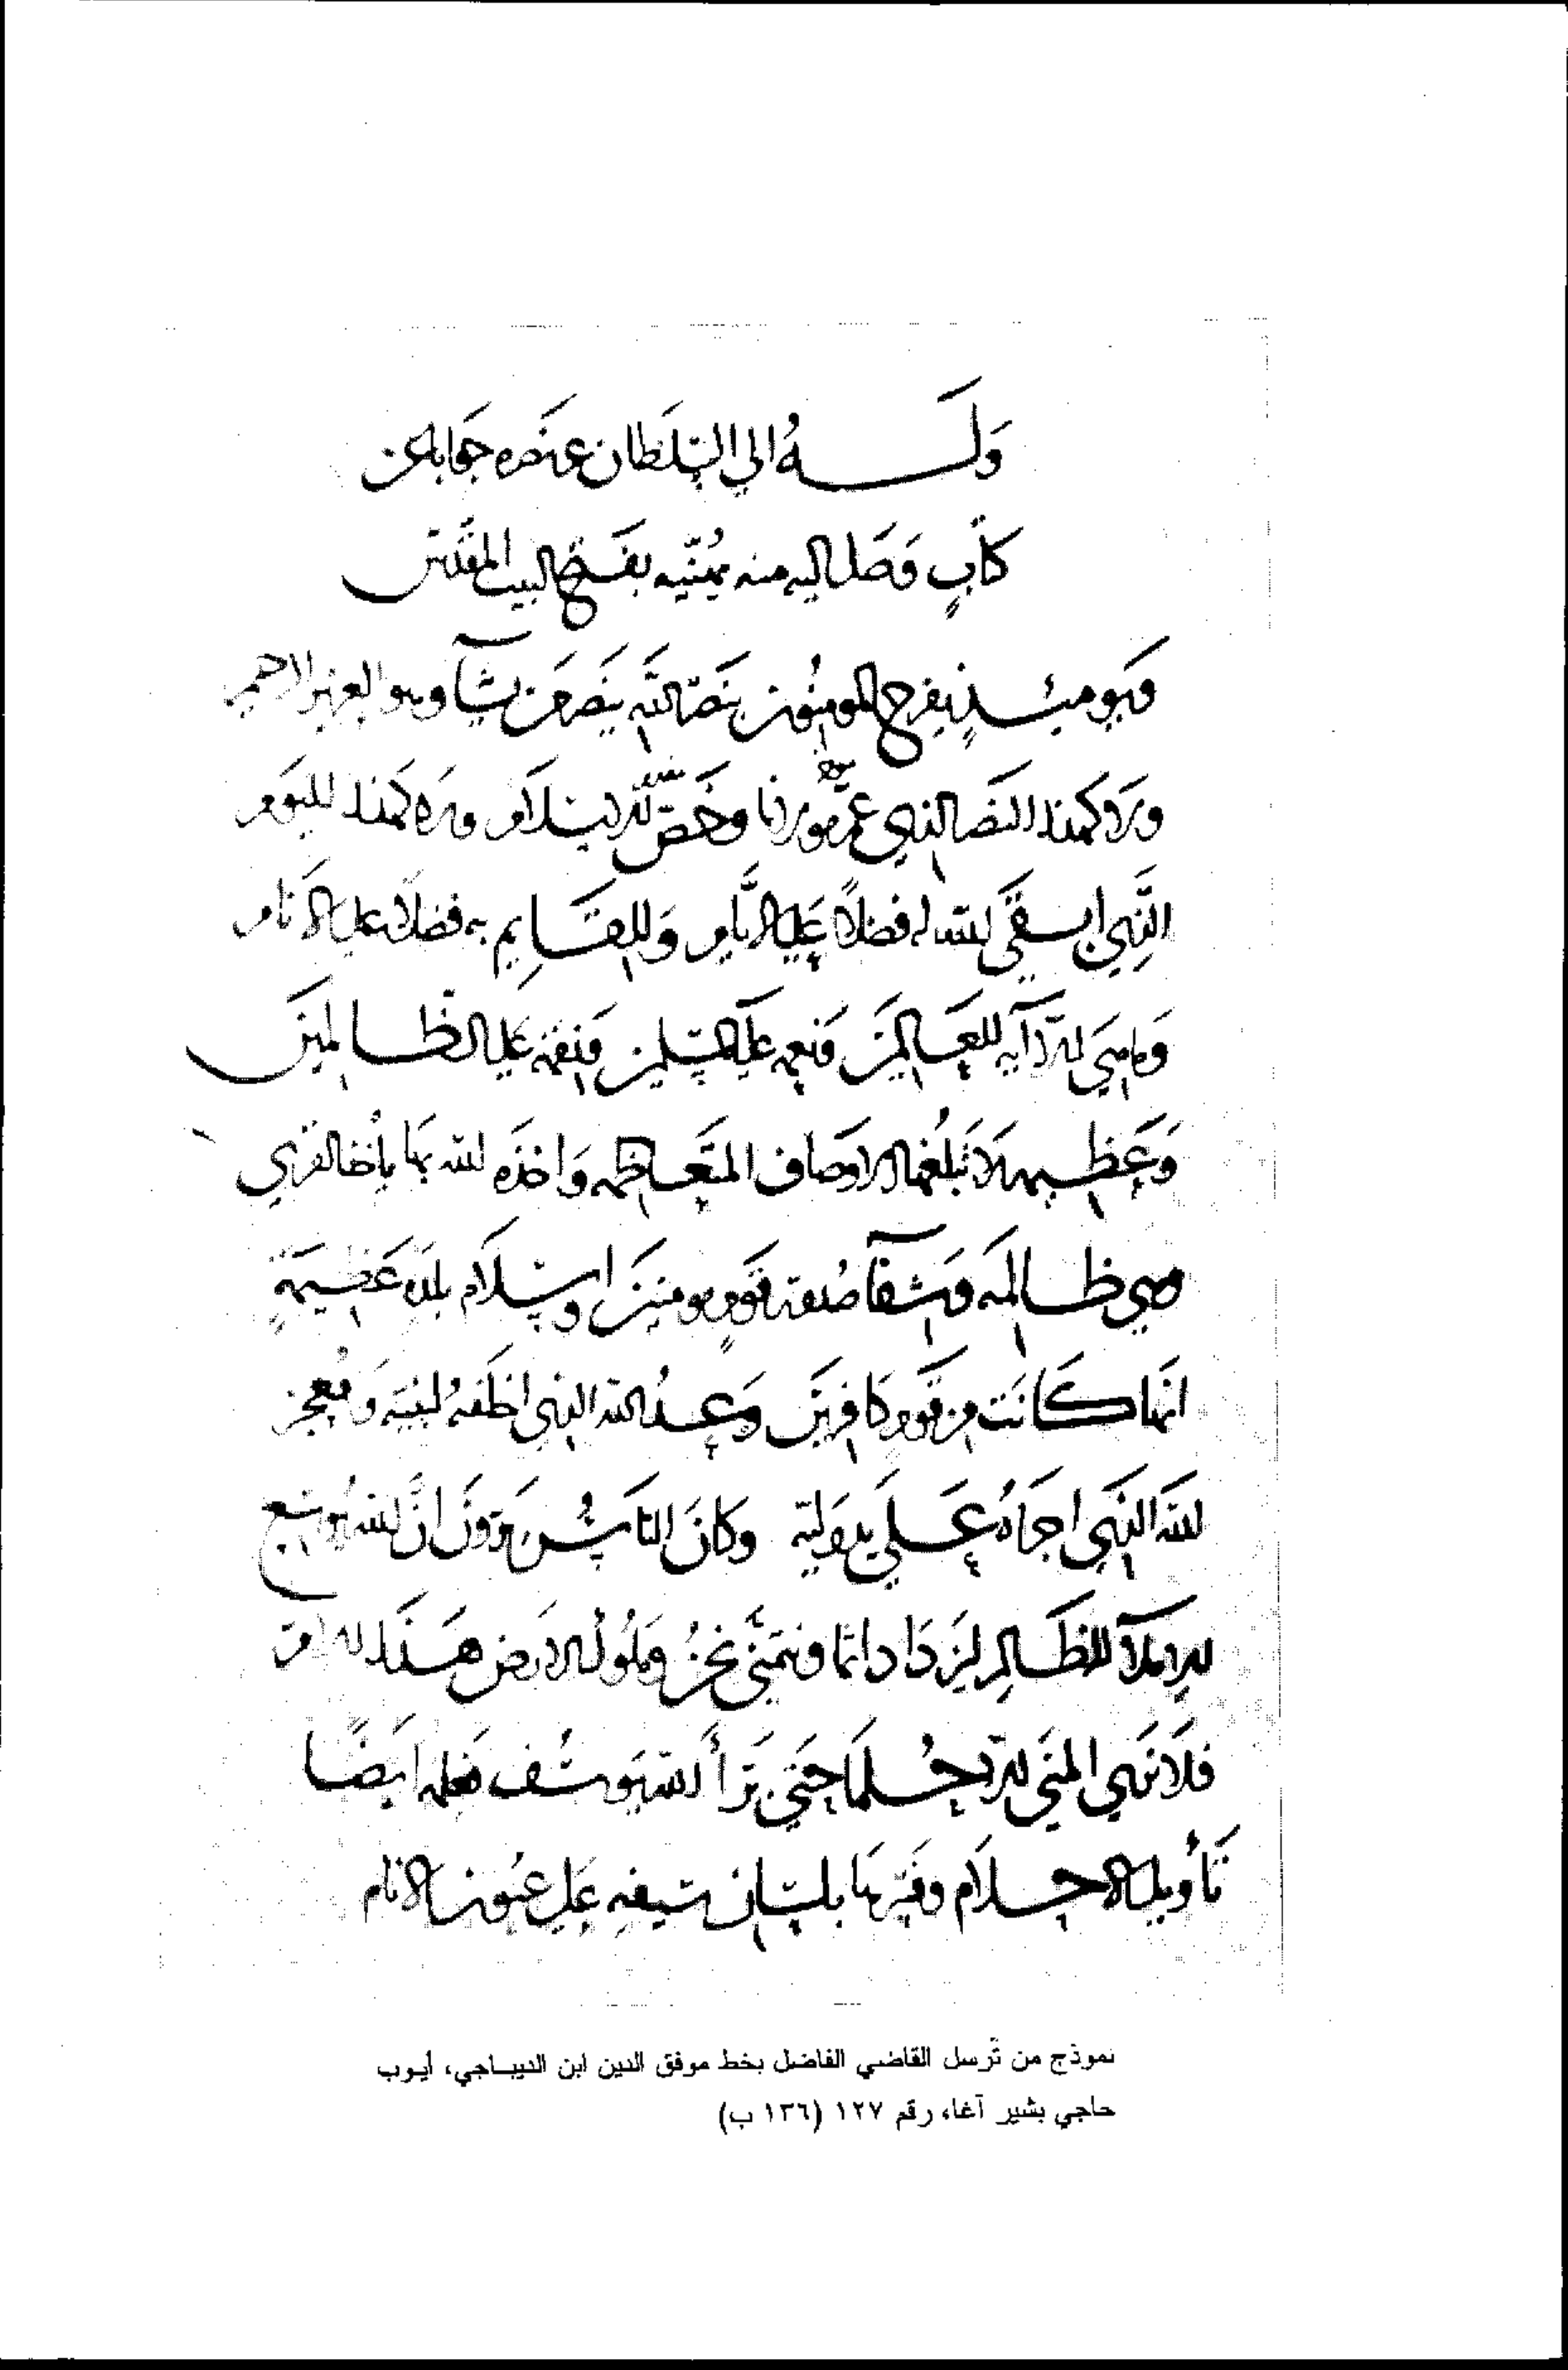 وله الى السلطان عز نصره جوابا عن
كتاب وصل اليه منه يهنيه بفتح البيت المقدس
ويوميذ يفرح المومنون بنصر الله ينصر من يشآ وهو العزيز الرحيم
ورد هذا النصر الذي عم موردنا وخص الاسلام وورد هذا اليوم
الذي ابقى الله له فضلا على الايام وللقايم به فضلا على الانام
وما هي الا آية للعالمين ونعمه على المسلمين ونقمة على الظالمين
وعظيمه لا تبلغها الاوصاف المتعاظمه واخذه لله بها ياخذ القرى
وهي ظالمه وشفآ صدور قوم مومنين واسلام بلدة عظيمة
انها كانت من قوم كافرين وعد الله الذي اظفر نبيه ومعجز
لله الذي اجراه على يد وليه وكان الناس يرون ان الله
للظالم ليزداد اثما ونتمنى نحن وملوك الارض هذا
فلا نرى المنى الا حلما حتى الله يوسف فعلمه ايضا
تأويل الاحلام وفسرها بلسان سيفه على عيون الانام
نموذج من ترسل القاضي الفاضل بخط موفق الدين ابن الديباجي، أيوب
حاجي بشير آغا، رقم ١٢٧ (١٣٦ ب)